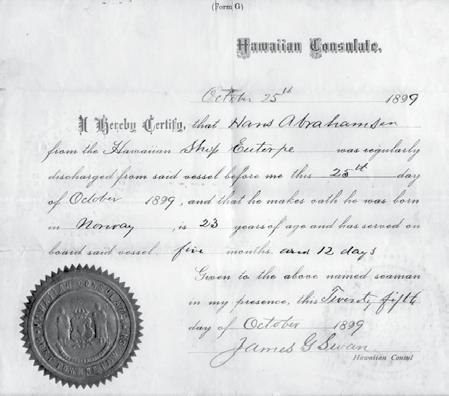 (Form G)
Hawaiian Consulate.
October 25th 1899
I Hereby Certify, that Hans Abrahamsen
from the Hawaiian Ship Euterpe was regularly
discharged from said vessel before me this 25th day
of October 1899, and that he makes oath he was born
in Norway, is 23 years of age and has served on
board said vessel five months and 12 days
Given to the above named seaman
in my presence, this Twenty fifth
day of October 1899
James G Swan
Hawaiian Consul